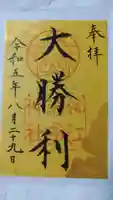 奉拝
大勝利
令和五年八月二十九日